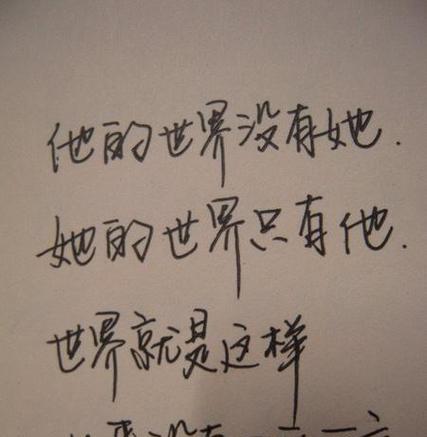 他的世界没有她.
她的世界只有他.
世界就是这样